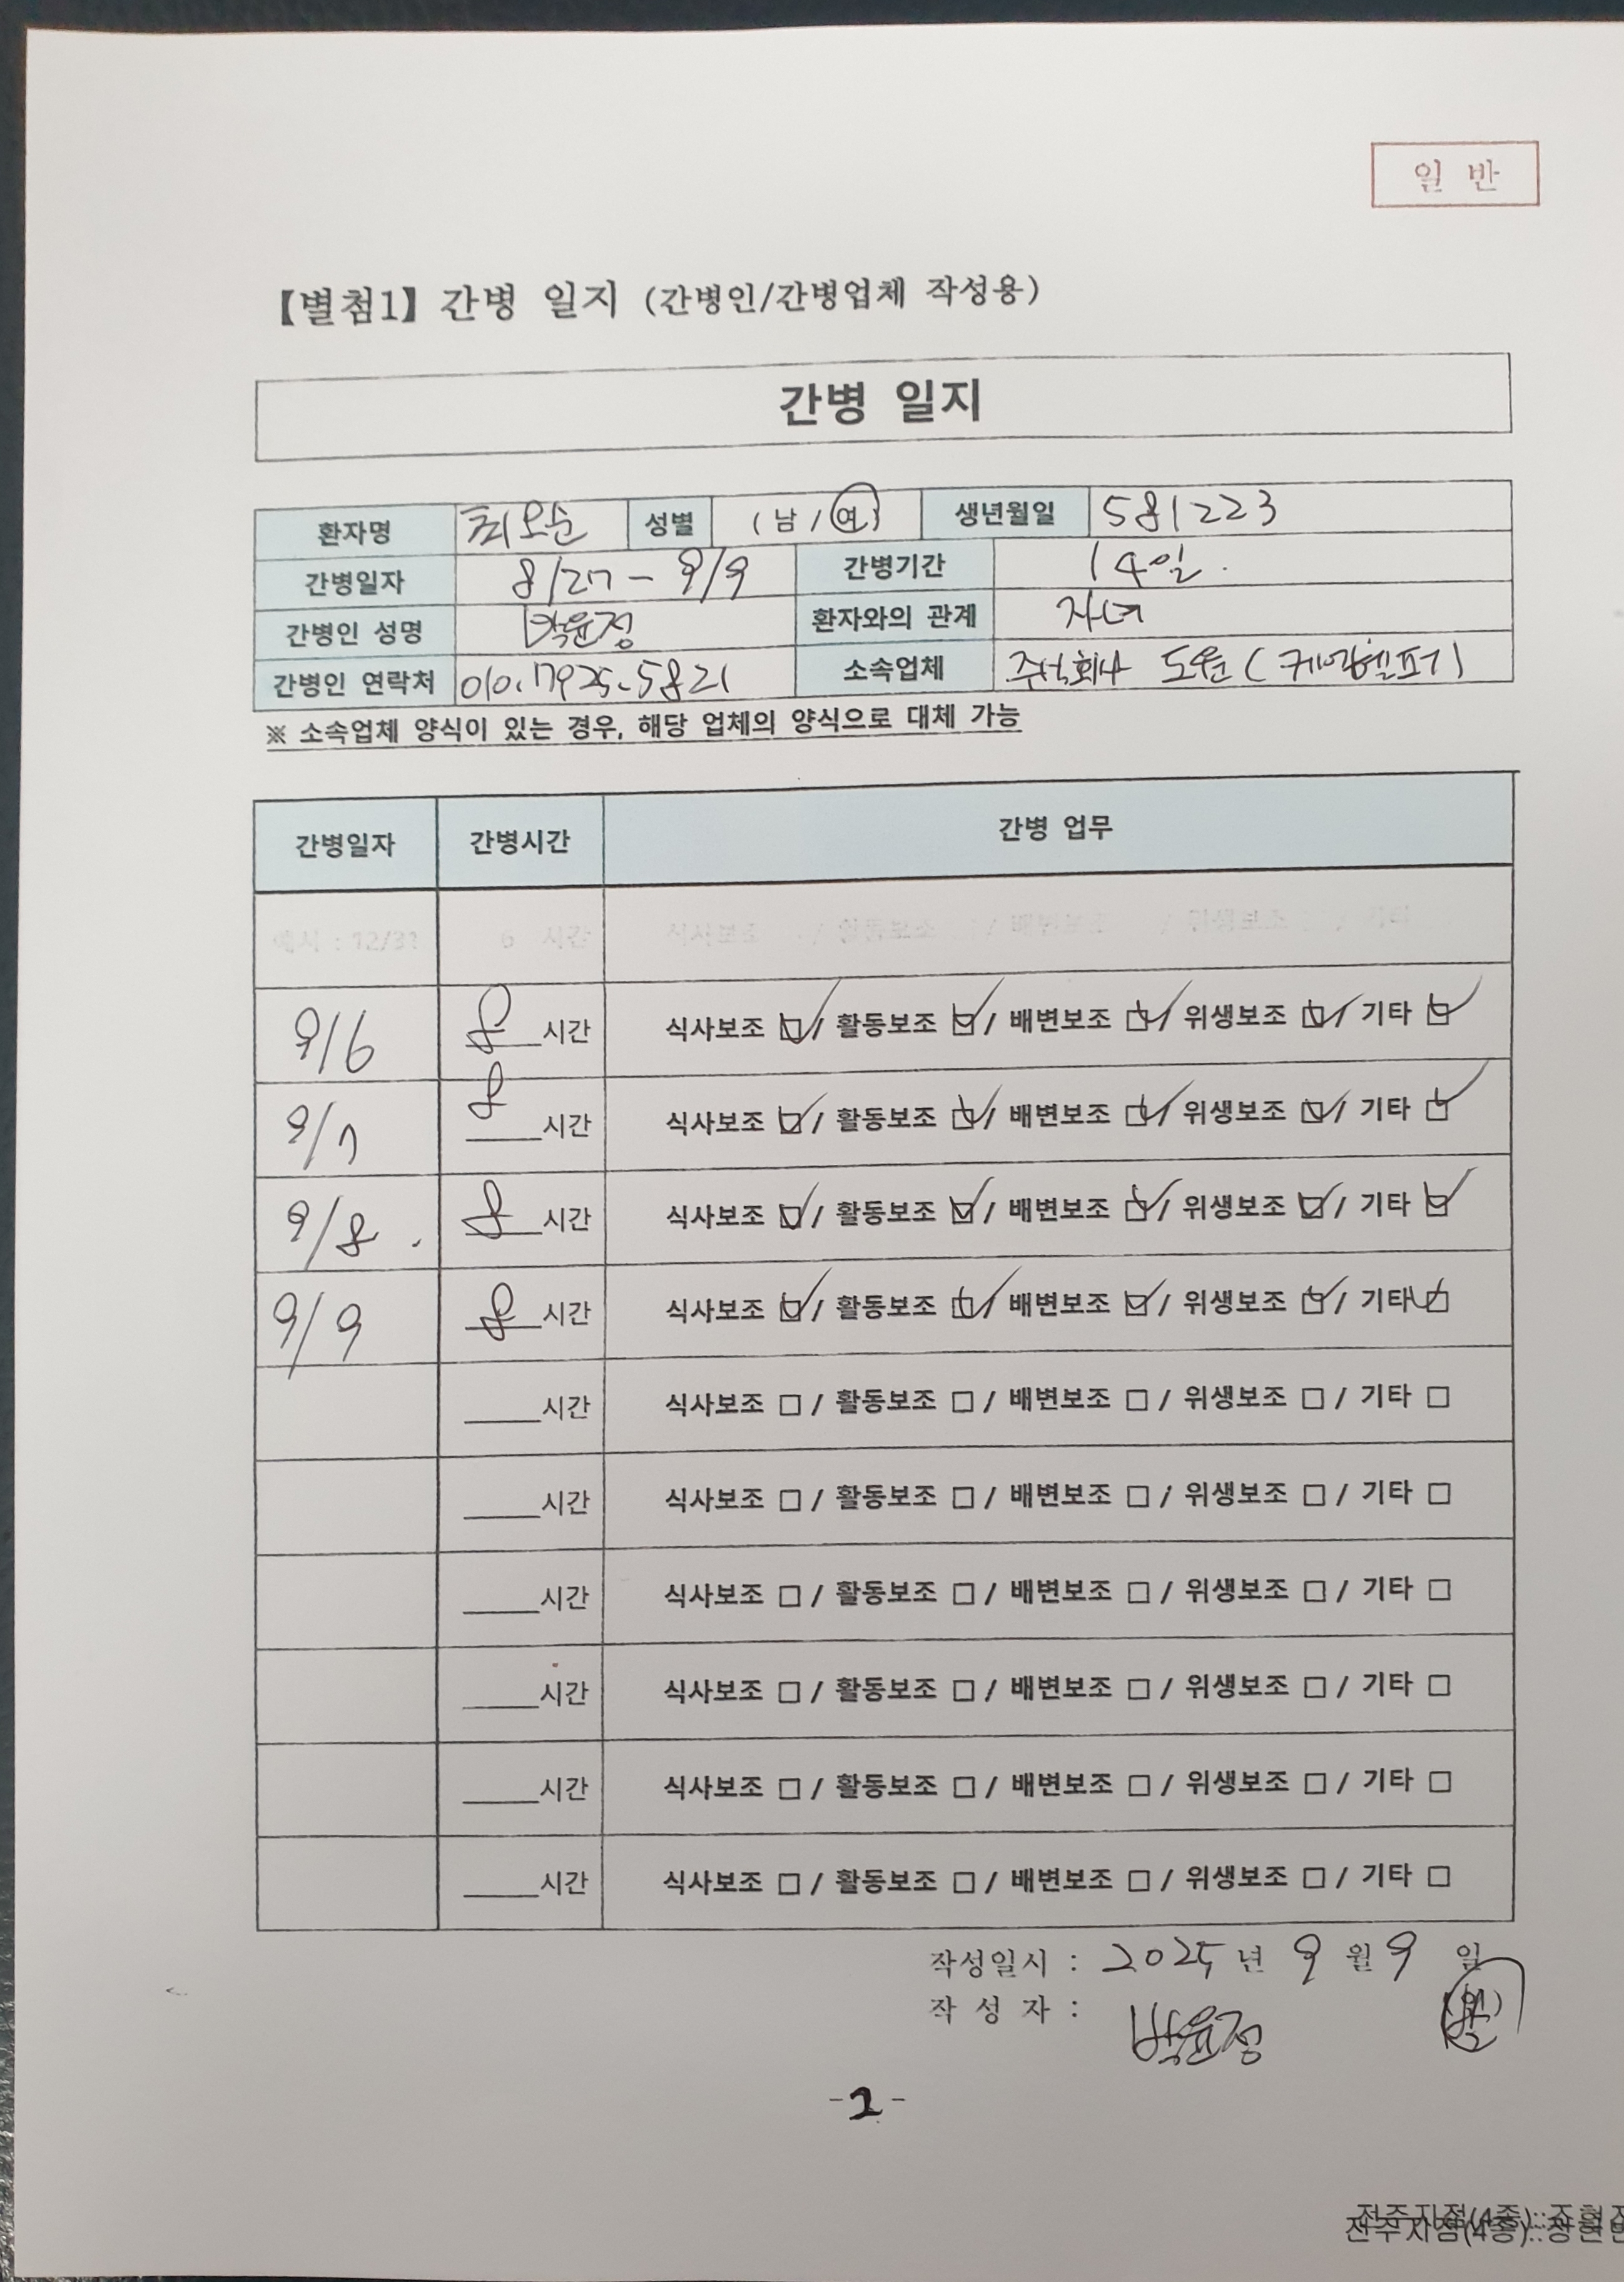 일 반
【별첨1】 간병 일지 (간병인/간병업체 작성용)
간병 일지
환자명 최오순 성별 (남/여) 생년월일 581223
간병일자 8/27 - 9/9 간병기간 14일.
간병인 성명 박윤정 환자와의 관계 자녀
간병인 연락처 010.7925.5821 소속업체 주식회사 도운(케어헬프기)
※ 소속업체 양식이 있는 경우, 해당 업체의 양식으로 대체 가능
간병일자 간병시간 간병 업무
예시 : 12/31 6 시간 식사보조 / 활동보조 / 배변보조 / 위생보조 / 기타
9/6 8 시간 식사보조 ☑ / 활동보조 ☑ / 배변보조 ☑ / 위생보조 ☑ / 기타 ☑
9/7 8 시간 식사보조 ☑ / 활동보조 ☑ / 배변보조 ☑ / 위생보조 ☑ / 기타 ☑
9/8. 8 시간 식사보조 ☑ / 활동보조 ☑ / 배변보조 ☑ / 위생보조 ☑ / 기타 ☑
9/9 8 시간 식사보조 ☑ / 활동보조 ☑ / 배변보조 ☑ / 위생보조 ☑ / 기타 ☑
____시간 식사보조 □ / 활동보조 □ / 배변보조 □ / 위생보조 □ / 기타 □
____시간 식사보조 □ / 활동보조 □ / 배변보조 □ / 위생보조 □ / 기타 □
____시간 식사보조 □ / 활동보조 □ / 배변보조 □ / 위생보조 □ / 기타 □
____시간 식사보조 □ / 활동보조 □ / 배변보조 □ / 위생보조 □ / 기타 □
____시간 식사보조 □ / 활동보조 □ / 배변보조 □ / 위생보조 □ / 기타 □
____시간 식사보조 □ / 활동보조 □ / 배변보조 □ / 위생보조 □ / 기타 □
작성일시 : 2025 년 9 월 9 일
작 성 자 : 박윤정 (인)
- 2 -
전주지점(4층)::